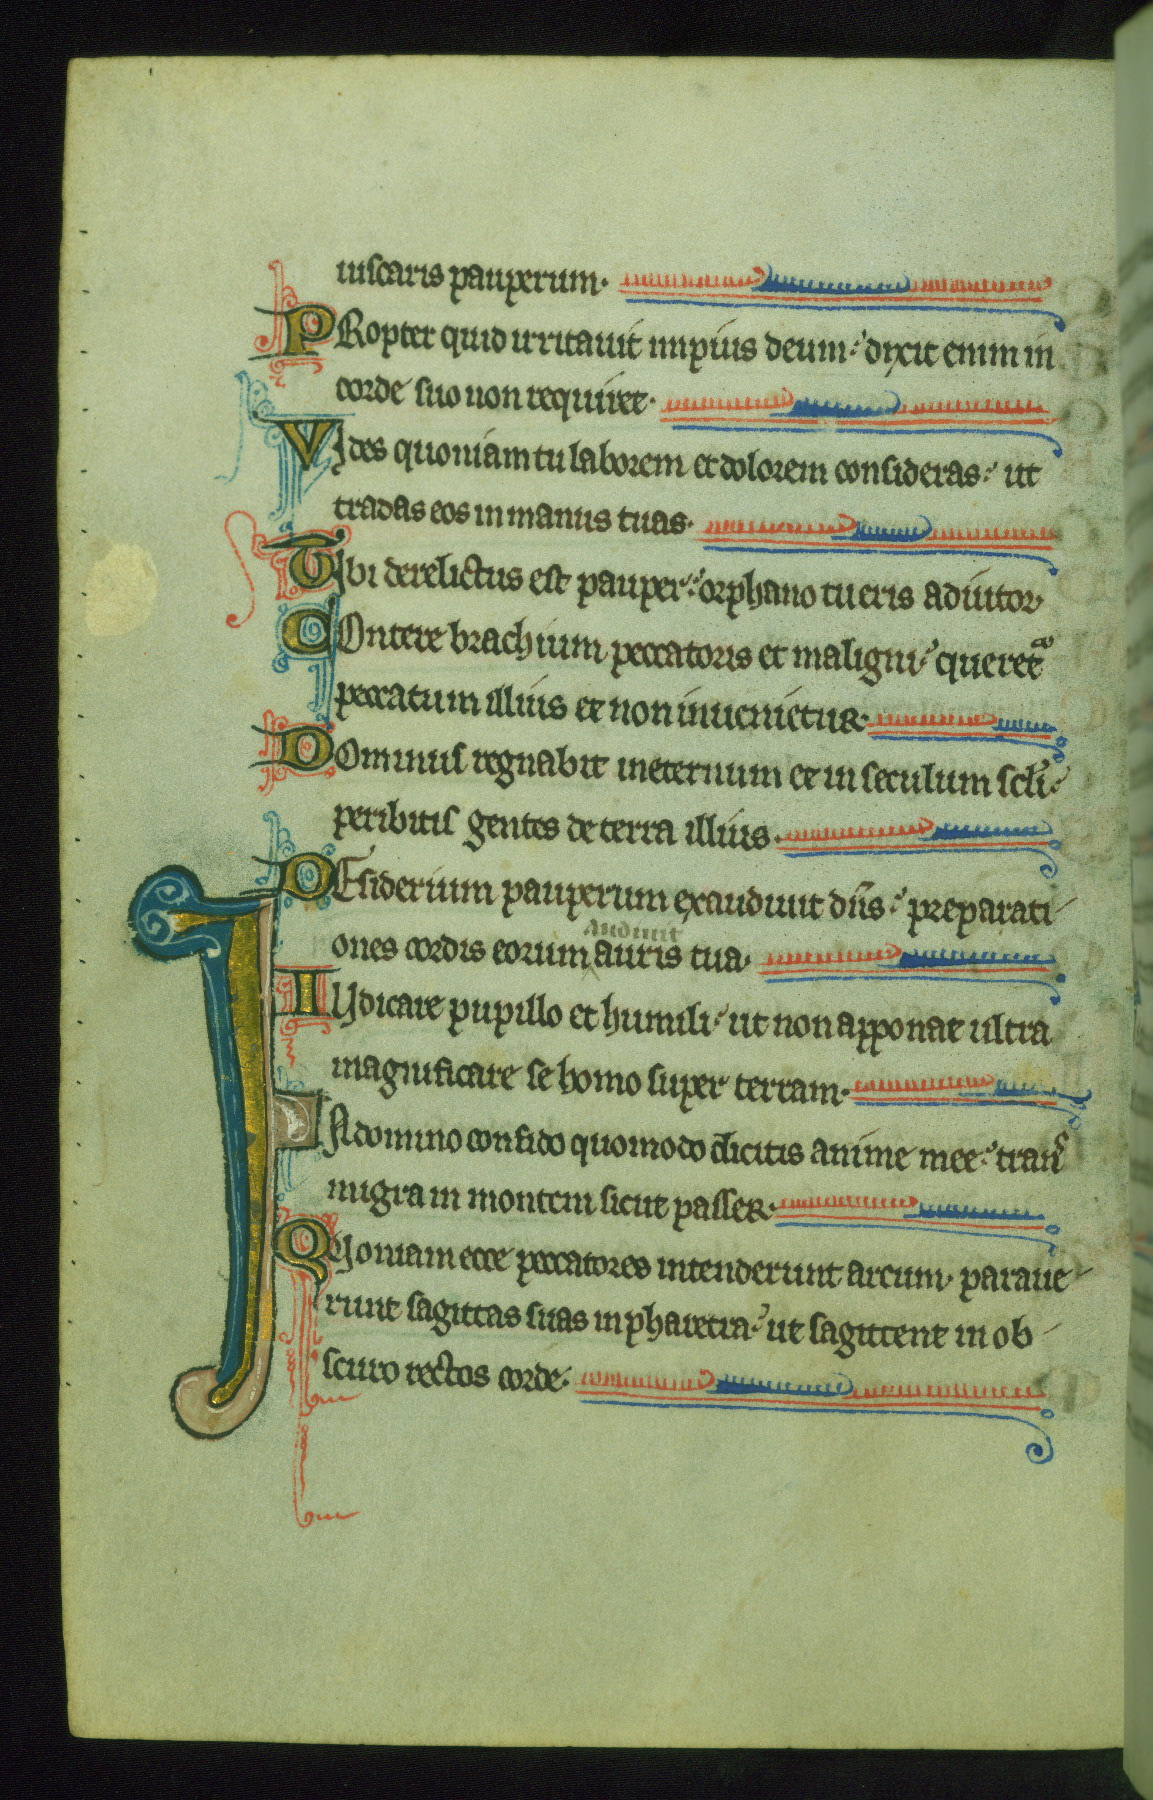 iuiscaris pauperum.
PRopter quid irritauit impius deum: dixit enim in
corde suo non requiret.
VIdes quoniam tu laborem et dolorem consideras: ut
tradas eos in manus tuas.
TIbi derelictus est pauper: orphano tu eris adiutor
COntere brachium peccatoris et maligni: queret᷑
peccatum illius et non inuenietur.
DOminus regnabit in eternum et in seculum scłi:
peribitis gentes de terra illius.
DEsiderium pauperum exaudiuit dn̄s: preparati
audiuit
ones cordis eorum auris tua.
IUdicare pupillo et humili: ut non apponat ultra
magnificare se homo super terram.
IN domino confido quomodo dicitis anime mee: trans
migra in montem sicut passer.
QUoniam ecce peccatores intenderunt arcum. paraue
runt sagittas suas in pharetra: ut sagittent in ob
scuro rectos corde.